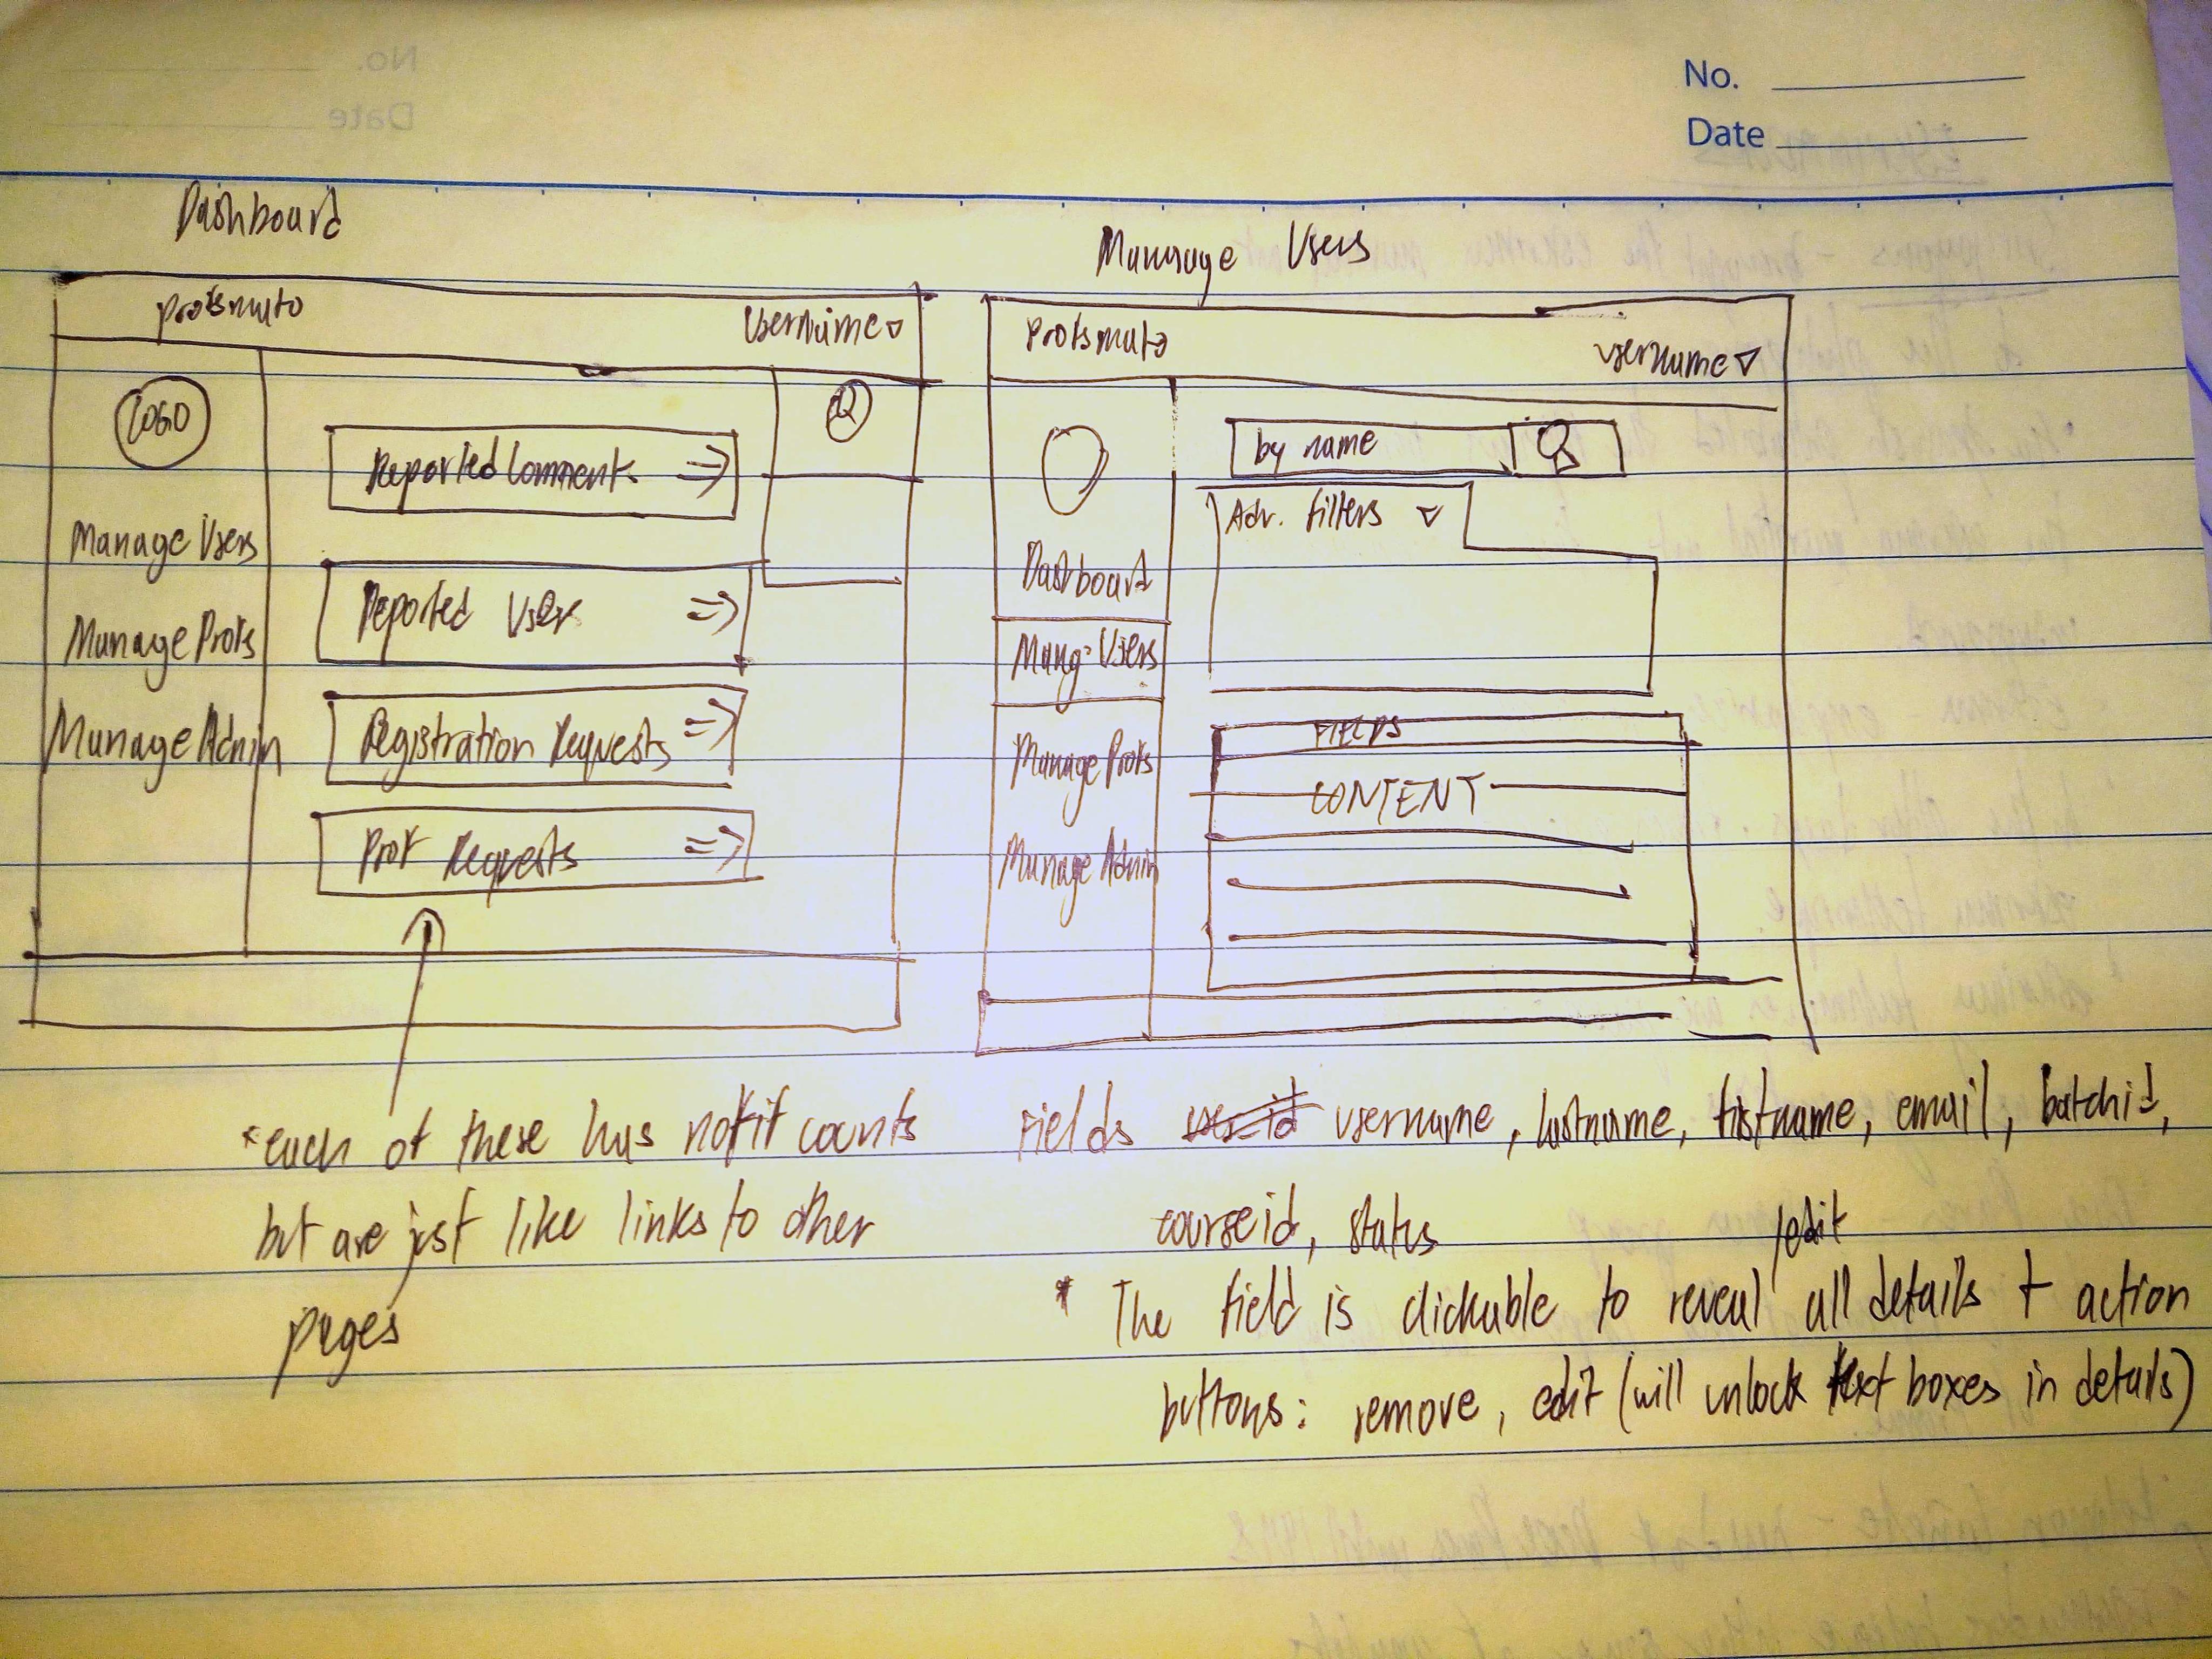 No.
Date
Dashboard
profsmuto
Username
LOGO
Manage Users
Manage Profs
Manage Admin
Reported Comments
Reported User
Registration Requests
Prof Requests
*each of these has notif counts
but are just like links to other
pages
Manage Users
Profsmuto
username
by name
Adv. filters
Dashboard
Mang. Users
Manage Profs
Manage Admin
FIELDS
CONTENT
Fields username, lastname, firstname, email, batchid,
courseid, status
/edit
* The field is clickable to reveal all details + action
buttons: remove, edit (will unlock text boxes in details)